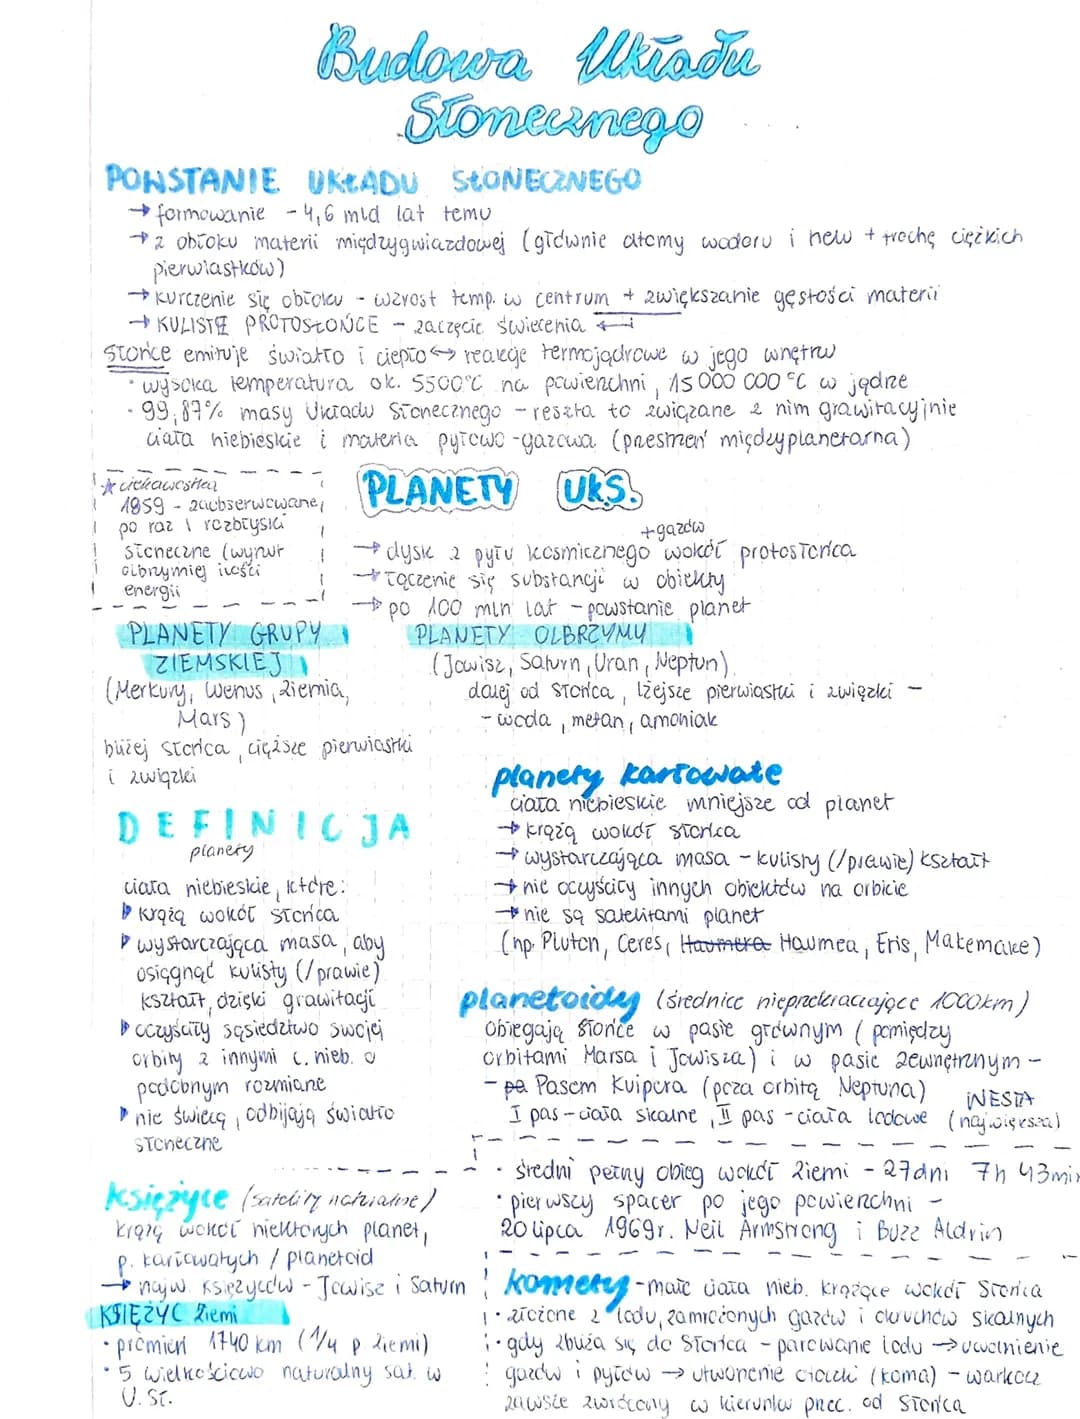 Budowa Układu
Słonecznego
POWSTANIE UKŁADU SŁONECZNEGO
→ formowanie - 4,6 mld lat temu
→ z obłoku materii międzygwiazdowej (głównie atomy wodoru i helu + trochę ciężkich
pierwiastków)
→ kurczenie się obłoku - wzrost temp. w centrum + zwiększanie gęstości materii
→ KULISTE PROTOSŁOŃCE - zaczęcie świecenia ←
Słońce emituje światło i ciepło ↔ reakcje termojądrowe w jego wnętrzu
• wysoka temperatura ok. 5500°C na powierzchni, 15 000 000 °C w jądrze
• 99,87% masy Układu Słonecznego - reszta to związane z nim grawitacyjnie
ciała niebieskie i materia pyłowo-gazowa (przestrzeń międzyplanetarna)
★ ciekawostka
1859 - zaobserwowane,
po raz 1 rozbłyski
słoneczne (wyrzut
olbrzymiej ilości
energii
PLANETY Uk.S.
+gazów
→ dysk z pyłu kosmicznego wokół protosłońca
→ łączenie się substancji w obiekty
→ po 100 mln lat - powstanie planet
PLANETY GRUPY
ZIEMSKIEJ
(Merkury, Wenus, Ziemia,
Mars)
bliżej Słońca, cięższe pierwiastki
i związki
PLANETY OLBRZYMY
(Jowisz, Saturn, Uran, Neptun)
dalej od Słońca, lżejsze pierwiastki i związki -
- woda, metan, amoniak
DEFINICJA
planety
ciała niebieskie, które:
▸ krążą wokół Słońca
▸ wystarczająca masa, aby
osiągnąć kulisty (/prawie)
kształt, dzięki grawitacji
▸ oczyściły sąsiedztwo swojej
orbity z innymi c. nieb. o
podobnym rozmiarze
▸ nie świecą, odbijają światło
słoneczne
planety karłowate
ciała niebieskie mniejsze od planet
→ krążą wokół Słońca
→ wystarczająca masa - kulisty (/prawie) kształt
→ nie oczyściły innych obiektów na orbicie
→ nie są satelitami planet
(np. Pluton, Ceres, Haumera Haumea, Eris, Makemake)
planetoidy (średnice nieprzekraczające 1000km)
obiegają Słońce w pasie głównym (pomiędzy
orbitami Marsa i Jowisza) i w pasie zewnętrznym -
- pa Pasem Kuipera (poza orbitą Neptuna)
WESTA
I pas - ciała skalne, II pas - ciała lodowe (największa)
Księżyce (satelity naturalne)
krążą wokół niektórych planet,
p. karłowatych / planetoid
→ najw. księżyców - Jowisz i Saturn
KSIĘŻYC Ziemi
• promień 1740 km (1/4 p. Ziemi)
• 5 wielkościowo naturalny sat. w
U.Sł.
• średni pełny obieg wokół Ziemi - 27dni 7h 43min
• pierwszy spacer po jego powierzchni -
20 lipca 1969r. Neil Armstrong i Buzz Aldrin
komety - małe ciała nieb. krążące wokół Słońca
• złożone z lodu, zamrożonych gazów i okruchów skalnych
• gdy zbliża się do Słońca - parowanie lodu → uwolnienie
gazów i pyłów → utworzenie otoczki (koma) - warkocz
zawsze zwrócony w kierunku przec. od Słońca